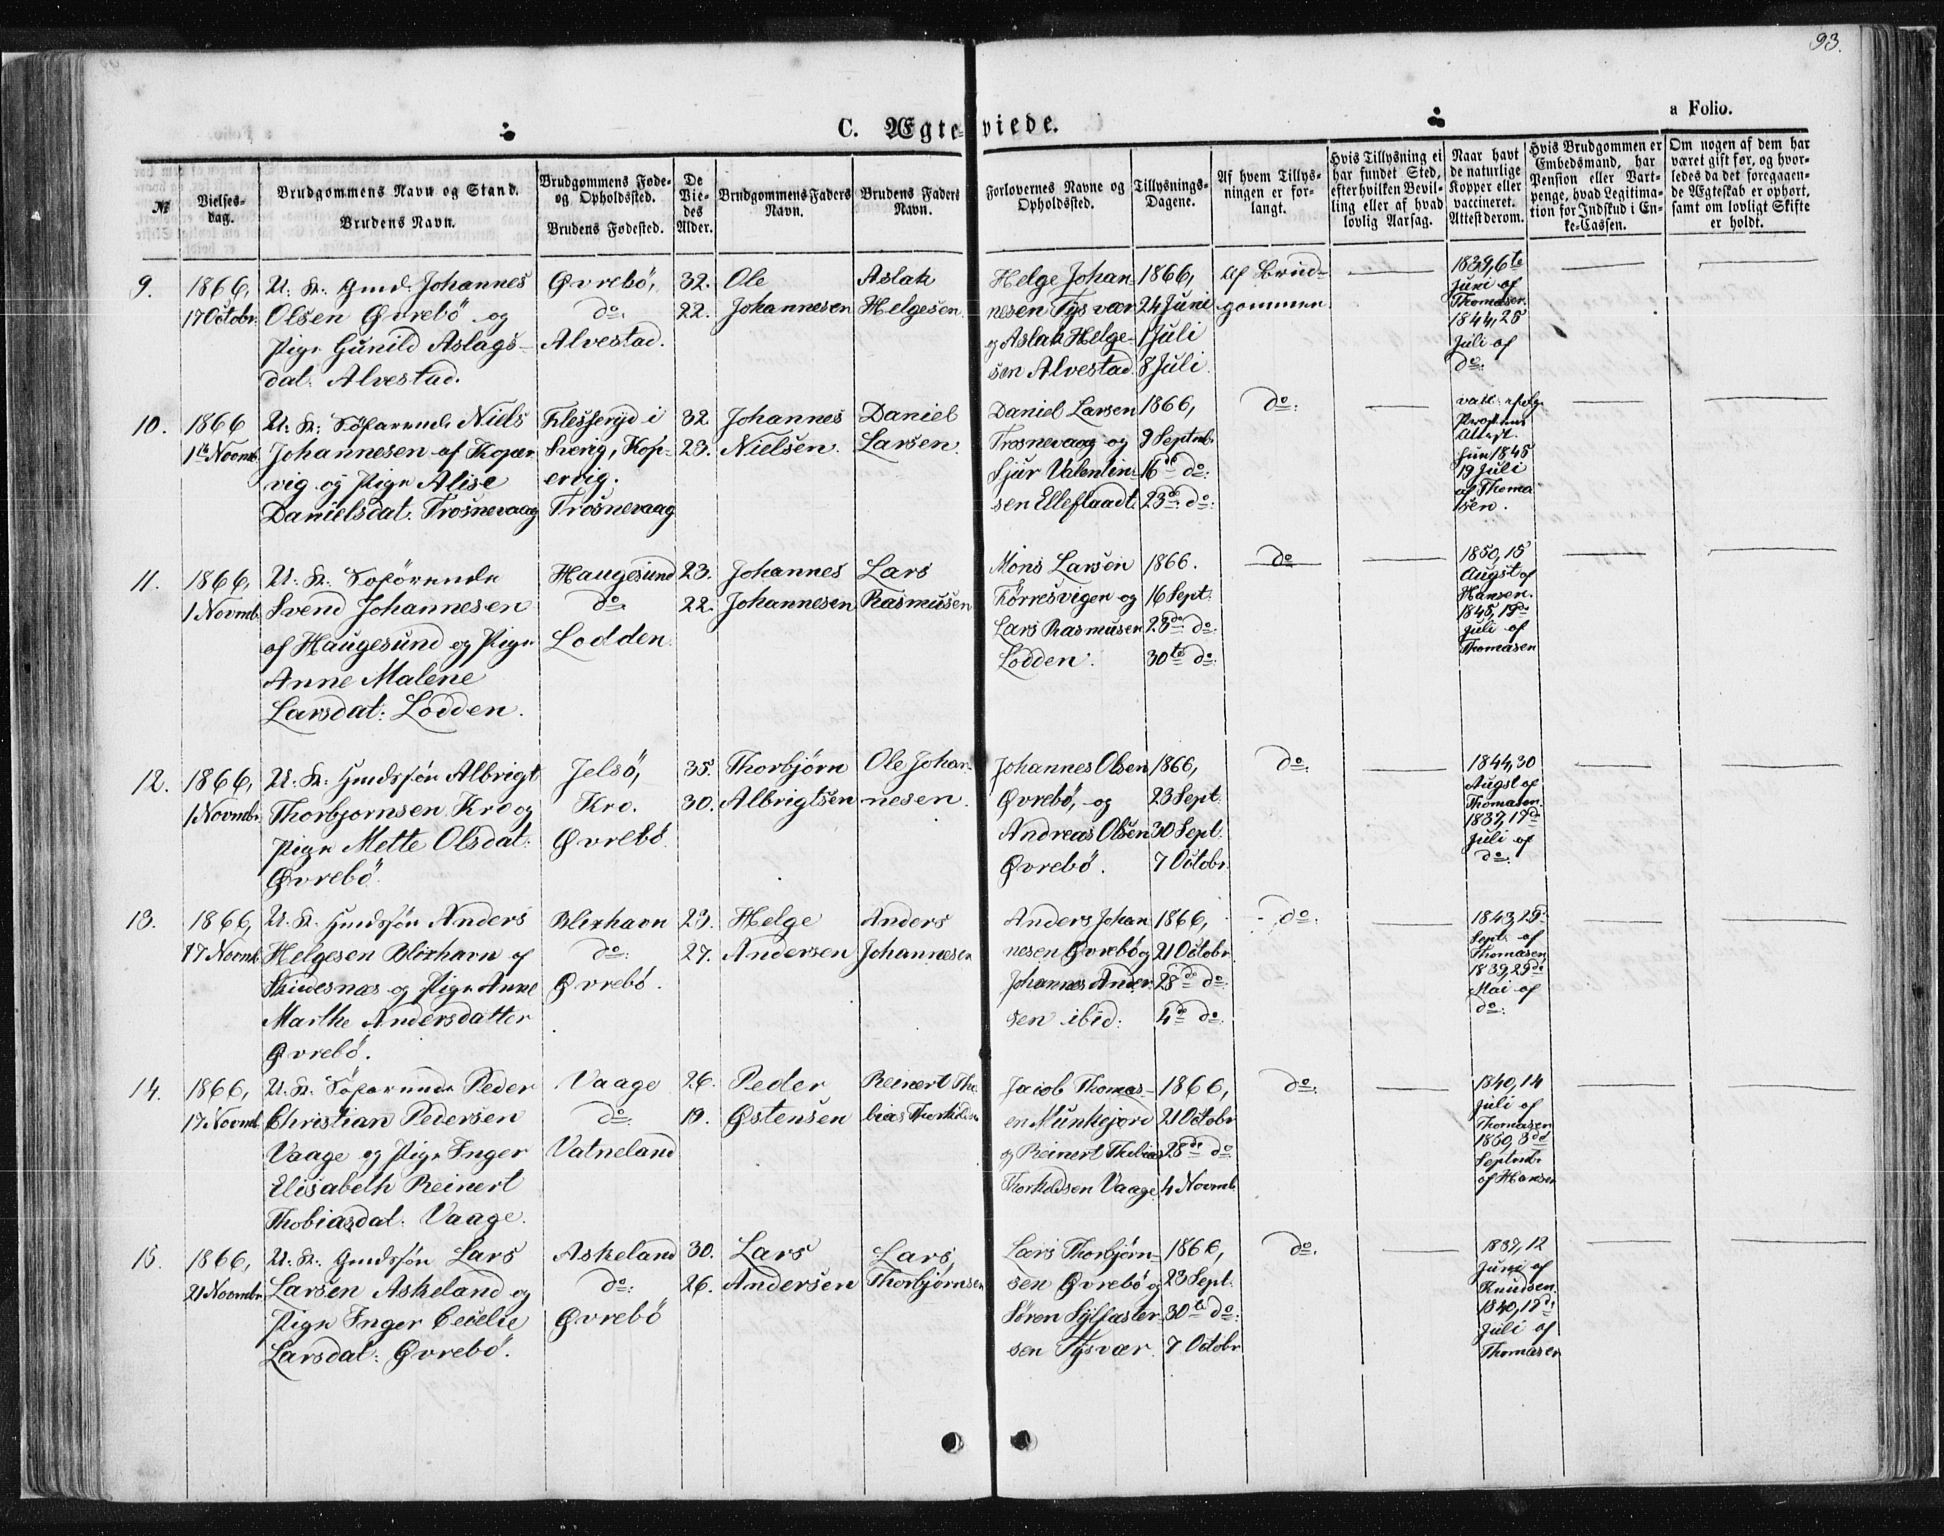 93.
a Folio.
C. Ægteviede.
№
Vielses-
dag.
Brudgommens Navn og Stand.
Brudens Navn.
Brudgommens Føde-
og Opholdssted.
Brudens Fødested.
De
Vie-
des
Alder.
Brudgommens Faders
Navn.
Brudens Faders
Navn.
Forlovernes Navne og
Opholdssted.
Tillysnings-
Dagene.
Af hvem Tillys-
ningen er for-
langt.
Hvis Tillysning ei
har fundet Sted,
efter hvilken Bevil-
ling eller af hvad
lovlig Aarsag.
Naar havt
de naturlige
Kopper eller
vaccineret.
Attest derom.
Hvis Brudgommen er
Embedsmand, har
Pension eller Vart-
penge, hvad Legitima-
tion for Indskud i En-
ke-Cassen.
Om nogen af dem har
været gift før, og hvor-
ledes da det foregaaen-
de Ægteskab er ophørt,
samt om lovligt Skifte
er holdt.
9.
1866,
17 Octobr.
U. K. Gmd. Johannes
Olsen Øvrebö og
Pige Gunild Aslags-
dat. Alvestad.
Øvrebö,
do.
Alvestad.
32.
22.
Ole
Johannesen
Aslak
Helgesen.
Helge Johan
nesen Tysvær
og Aslak Helge-
sen Alvestad.
1866,
24 Juni
1 Juli
8 Juli.
Af Brud-
gommen.
1839, 6te
Juni af
Thomasen.
1844, 25
Juli af
do.
10.
1866
1te Novmb.
U. K. Söfarende Niels
Johannesen af Koper
vig og Pige Alise
Danielsdat. Trosnevaag
Flesseryd i
Sverig, Kop-
ervig.
Trosnevaag
32
23.
Johannes
Nielsen.
Daniel
Larsen.
Daniel Larsen
Trosnevaag og
Sjur Valentin-
sen Elleflaadt.
1866,
9 Septmb.
16de do:
23de do:
do:
Attest.
1845
19 Juli
af Thoma
sen.
11.
1866,
1 Novmb.
U. K. Söfarende
Svend Johannesen
af Haugesund og Pige
Anne Malene
Larsdat: Lodden.
Haugesund
do.
Lodden.
23.
22.
Johannes
Johannesen
Lars
Rasmusen
Mons Larsen
Førresvigen og
Lars Rasmusen
Lodden.
1866.
16 Sept.
23de do:
30te do:
do
1850, 15
Augst af
Hansen.
1845, 19de
Juli af
Thomasen
12.
1866,
1 Novmbr.
U. K. Gmdsfön Albrigt
Thorbjornsen Kro og
Pige Mette Olsdat.
Øvrebö.
Jelsö,
Kro.
Øvrebö.
35.
30.
Thorbjørn
Albrigtsen
Ole Johan-
nesen.
Johannes Olsen
Øvrebö, og
Andreas Olsen
Øvrebö.
1866,
23 Sept.
30 Sept.
7 Octobr.
do:
1844, 30
Augst af
Thomasen.
1837, 17de
Juli af
do.
13.
1866,
17 Novmb.
U. K. Gmdsfön Anders
Helgesen Blixhavn af
Skudesnæs og Pige Anne
Marthe Andersdatter
Øvrebö.
Blixhavn
do:
Øvrebö.
23.
27.
Helge
Andersen
Anders
Johannesen
Anders Johan
nesen Øvrebö og
Johannes Ander
sen ibid:
1866,
21 Octobr
28de do:
4de do:
do:
1843, 29de
Sept. af
Thomasen
1839, 29de
Mai af
do:
14.
1866,
17 Novmb.
U. K. Söfarende Peder
Christian Pedersen
Vaage og Pige Inger
Elisabeth Reinert
Thobiasdat. Vaage.
Vaage
do:
Vatneland
26.
19.
Peder
Østensen
Reinert Tho
bias Thorkildsen
Jacob Thomas-
en Munkejord
og Reinert Thobias
Thorkildsen Vaage
1866,
21 Octobr
28de do:
4 Novmb.
do:
1840, 14
Juli af
Thomasen
1850, 3de
Septmb.
af Hansen
15.
1866,
21 Novmbr.
U. K. Gmdsfön Lars
Larsen Askeland og
Pige Inger Cecelie
Larsdat: Øvrebö.
Askeland
do:
Øvrebö
30.
26.
Lars
Andersen
Lars
Thorbjørnsen
Lars Thorbjørn-
sen Øvrebö og
Søren Sylfaster-
sen Tysvær.
1866,
23 Sept.
30te do:
7 Octobr
do.
1837, 12
Juni af
Knudsen.
1840, 18de
Juli af
Thomasen